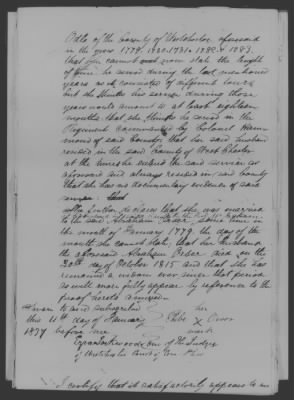 Odle of the County of Westchester aforesaid
in the years 1779. 1780. 1781. 1782 & 1783.
that she cannot now state the length
of time he served during the last mentioned
years as it consisted of different tours
but she thinks his service during those
years would amount to at least eighteen
months that she thinks he served in the
Regiment commanded by Colonel
of said County, that her said husband
resided in the said County of West Chester
at the time he entered the said service as
aforesaid and always resided in said County
that she has no documentary evidence of said
service
She further declares that she was married
to the said Abraham some time in
the month of January 1779. the day of the
month she cannot state, that her husband
the aforesaid Abraham died on the
30th day of October 1815 and that she has
remained a widow ever since that period
as will more fully appear by reference to the
proof hereto annexed.
Sworn to and subscribed her
this 11th day of January Phebe X
1837 before me mark
Ezra Lockwood One of the Judges
of Westchester County
I certify that it satisfactorily appears to me